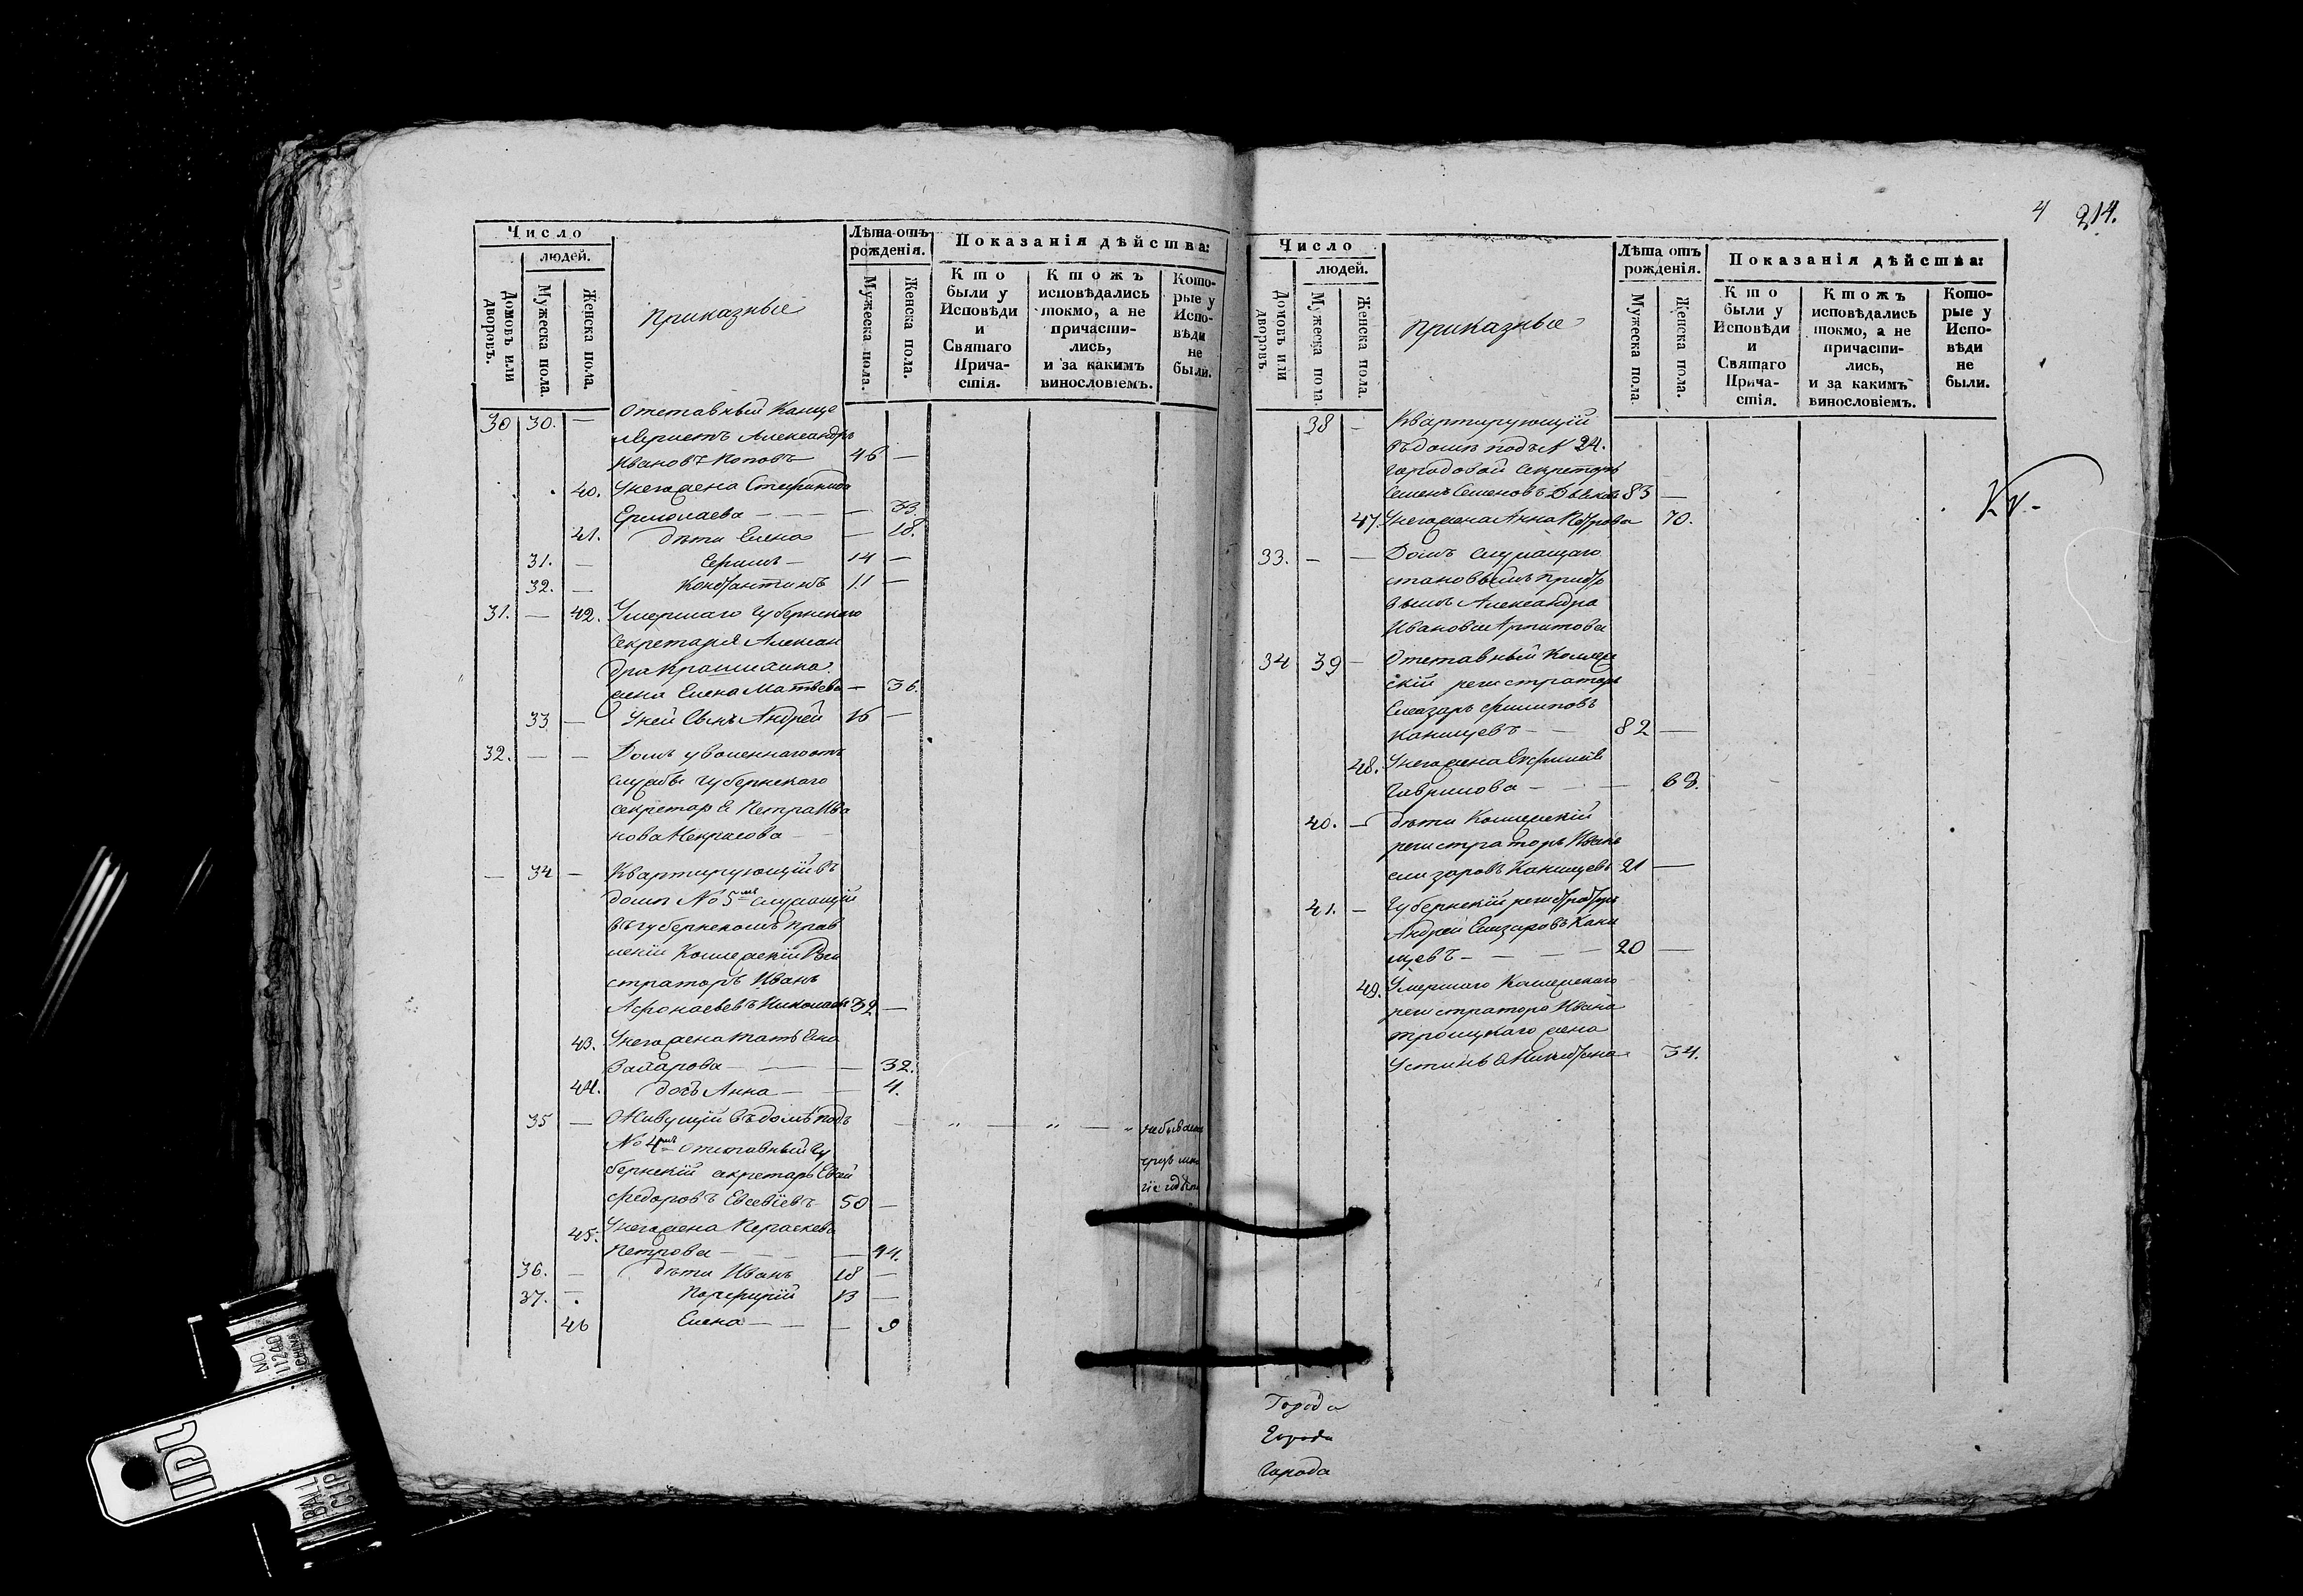 4 214.
Число
людей.
Домовъ или дворовъ.
Мужеска пола.
Женска пола.
Приказные
Лѣта отъ рожденія.
Мужеска пола.
Женска пола.
Показанія дѣйства:
Кто были у Исповѣди и Святаго Прича-стія.
Ктожъ исповѣдались токмо, а не причасти-лись, и за какимъ винословіемъ.
Кото-рые у Испо-вѣди не были.
30 30. — Отставный Канце
ляристъ Александръ
Ивановъ Поповъ 46 —
40. Унего жена Стефанида
Ермолаева — — — 33.
41. дѣти Елена — 18.
31. — Ефимъ — 14 —
32. — Константинъ 11 —
31. — 42. Умершаго Губернскаго
Секретаря Алексан
дра
жена Елена Матвѣева — 36.
33 — Уней Сынъ Андрей 16 —
32. — — Домъ уволеннаго отъ
службы Губернскаго
секретаря Петра Ива
нова Некрасова
— 34 — Квартирующій въ
домѣ № 5мъ служащій
въ губернскомъ прав
леніи Коллежскій Реги
страторъ Иванъ
Афонасьевъ Николаевъ 32 —
43. Унего жена Татьяна
Захарова — — — 32.
44. дочь Анна — — 4.
35 — Живущій въ домѣ подъ — " — " — " небываетъ
№ 4мъ отставный Гу
бернскій секретарь Евсей
Федоровъ Евсевіевъ 50 —
45. Унего жена Параскева
Петрова — — 44.
36. — дѣти Иванъ 18 —
37. — Порфирій 13 —
46 Елена — — — 9
Число
людей.
Домовъ или дворовъ
Мужеска пола
Женска пола.
Приказные
Лѣта отъ рожденія.
Мужеска пола.
Женска пола.
Показанія дѣйства:
Кто были у Исповѣди и Святаго Прича-стія.
Ктожъ исповѣдались токмо, а не причасти-лись, и за какимъ винословіемъ.
Кото-рые у Испо-вѣди не были.
38 — Квартирующій
въ домѣ подъ № 24.
городовой секретарь
Семенъ Семеновъ 83 —
47. Унего жена Анна Петрова 70.
33. — — Домъ служащаго
становымъ приста
вымъ Александра
Иванова
34 39 — Отставный Коллеж
скій регистраторъ
Елеазаръ Филиповъ
Канищевъ — — 82 —
48. Унего жена
Гаврилова — — 63.
40. — дѣти Коллежскій
регистраторъ Иванъ
Елизаровъ Канищевъ 21 —
41. — Губернскій регистраторъ
Андрей Елизаровъ Кани
щевъ — — — 20 —
49. Умершаго Коллежскаго
регистратора Ивана
Троицкаго жена
Устинья Никитина 34.
Города
Города
Города
NO.
11240
CHINA
BALL
CLIP